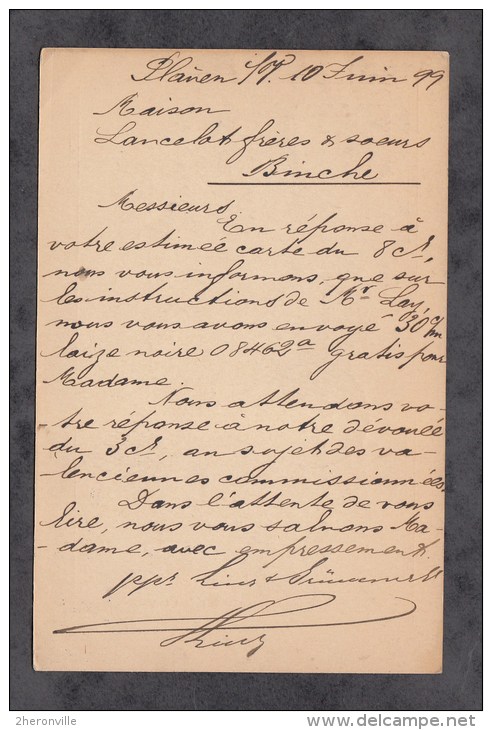 Plauen i/V. 10 Juin 99
Maison
Lancelot frères & soeurs
Binche
Messieurs,
En réponse à
votre estimée carte du 8 ct,
nous vous informons, que sur
les instructions de Mr Lay,
nous vous avons envoyé 30 c/m
laize noire 08462a gratis pour
Madame.
Nous attendons vo-
tre réponse à notre dévouée
du 3 ct, au sujet des va-
lenciennes commissionnées.
Dans l'attente de vous
lire, nous vous saluons Ma-
-dame, avec empressement.
ppr
2heronville
www.delcampe.net